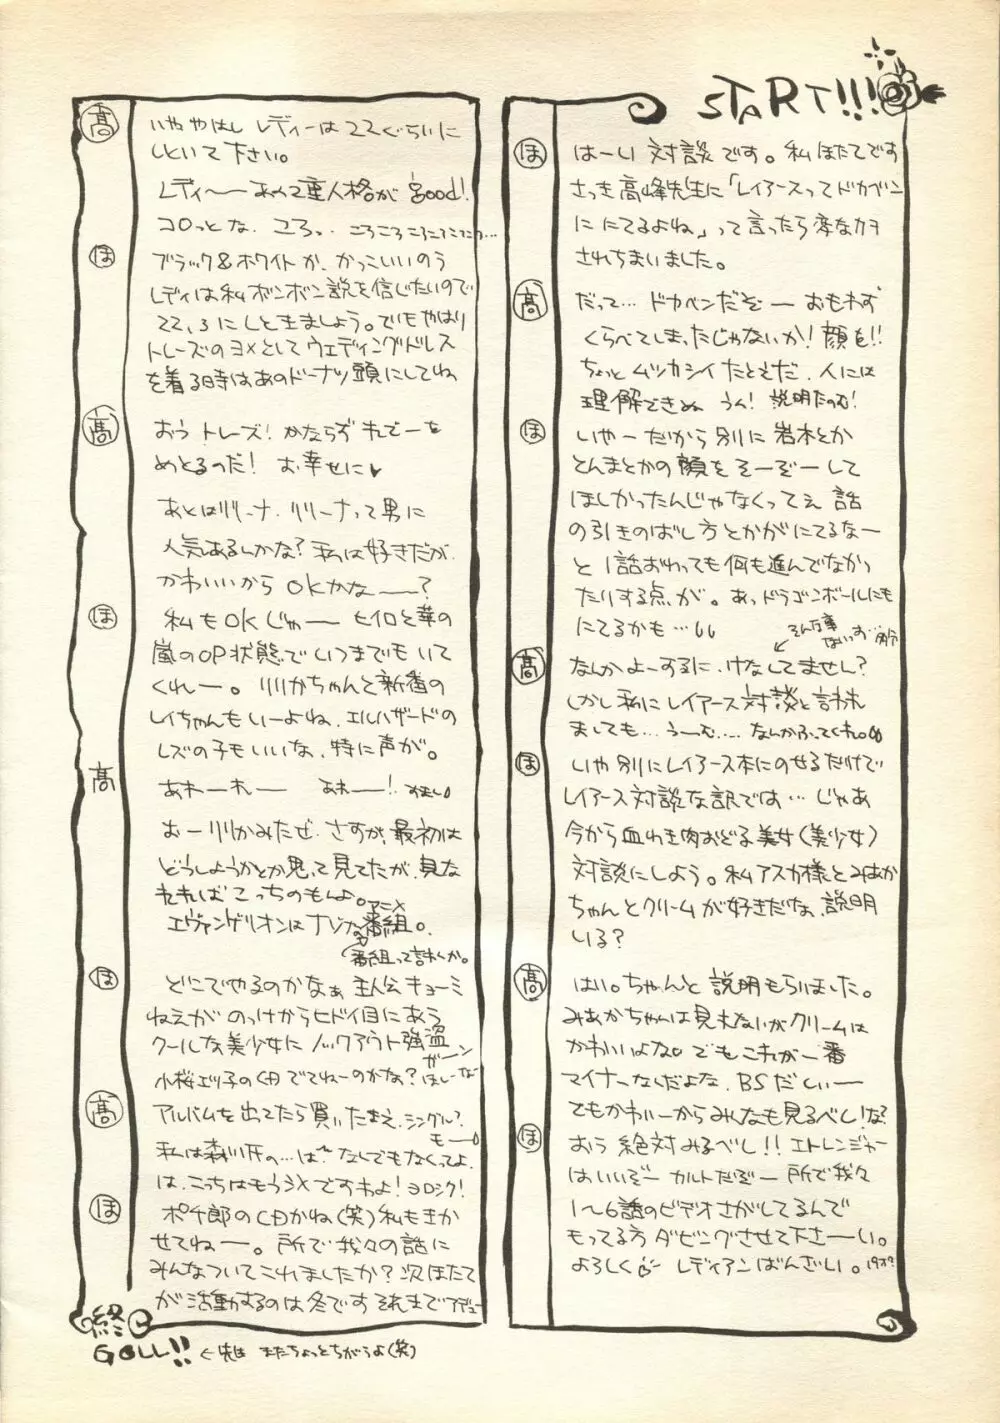 START!!!
ほ はーい 対談です。私ほたてです
さっき高峰先生に「レイアースってドカベン
に にてるよね」って言ったら変なカオ
されちまいました。
髙 だって… ドカベンだぞー おもわず
くらべてしまったじゃないか!顔を!!
ちょっと ムツカシイ たとえだ、人には
理解できぬ うん! 説明たのむ!
ほ いやーだから別に 岩木とか
とんまとかの顔を そーぞーして
ほしかったんじゃなくってぇ 話
の引きのばし方とかがにてるなー
と 1話おわっても何も進んでなかっ
たりする点が。あっドラゴンボールにも
にてるかも…
そんな事ないっす
髙 なんかよーするに、けなしてません?
しかし私にレイアース対談と言われ
ましても…うーむ…… なんかふってくれ。
ほ いや別にレイアース本にのせるだけで
レイアース対談な訳では… じゃあ
今から血わき肉おどる美女(美少女)
対談にしよう。私アスカ様とみはか
ちゃんとクリームが好きだな、説明
いる?
髙 はい。ちゃんと 説明もらいました。
みあかちゃんは見えないがクリームは
かわいいよな。でもこれが一番
マイナーなんだよな、BSだしぃー
でもかわいーからみんなも見るべし!な?
ほ おう 絶対みるべし!! エトレンジャー
はいいぞー カルトだぞー 所で我々
1〜6話のビデオさがしてるんで
もってる方 ダビングさせて下さーい。
よろしく レディアンばんざい。
髙 いややはし レディーは22ぐらいに
しといて下さい。
レディ〜 あの2重人格が good!
コロっとな、ころっ、ころころころころころ…
ほ ブラック&ホワイトか、かっこいいのう
レディは私ボンボン説を信じたいので
22,3にしときましょう。でもやはり
トレーズのヨメとして ウェディングドレス
を着る時はあのドーナツ頭にしてね
髙 おう トレーズ! かならず れでーを
めとるのだ! お幸せに♥
あとはリリーナ、リリーナって男に
人気あるんかな? 私は好きだが、
かわいいから OKかな——?
ほ 私もOKじゃー ヒイロと華の
嵐のOP状態で いつまでも いて
くれー。リリかちゃんと新番の
レイちゃんもいーよね、エルハザードの
レズの子もいいな、特に声が。
髙 あれーれー あれー!
おーリリかみたぜ、さすが、最初は
どうしようかとか思って見てたが、見な
れれば こっちのもんよ。
エヴァンゲリオンは TVな番組。
アニメ
番組って言わんか。
ほ どこでやるのかなぁ 主人公キューミ
ねえがのっけからヒドイ目にあう
クールな美少女に ノックアウト強盗
小桜エツ子のCD でてねーのかな? ほしーな
ガーン
髙 アルバムを出てたら買いたまえ、シングル?
もー
私は森川氏の…は なんでもなくってよ、
は、こっちはもうシメですわよ! ヨロシク!
ほ ポチ郎のCDかね(笑)私もきか
せてねー。所で我々の話に
みんなついてこれましたか? 次ほたて
が活動するのは冬です それまでアデュー
終
GOLL!! 
く先は またちょっとちがうよ(笑)